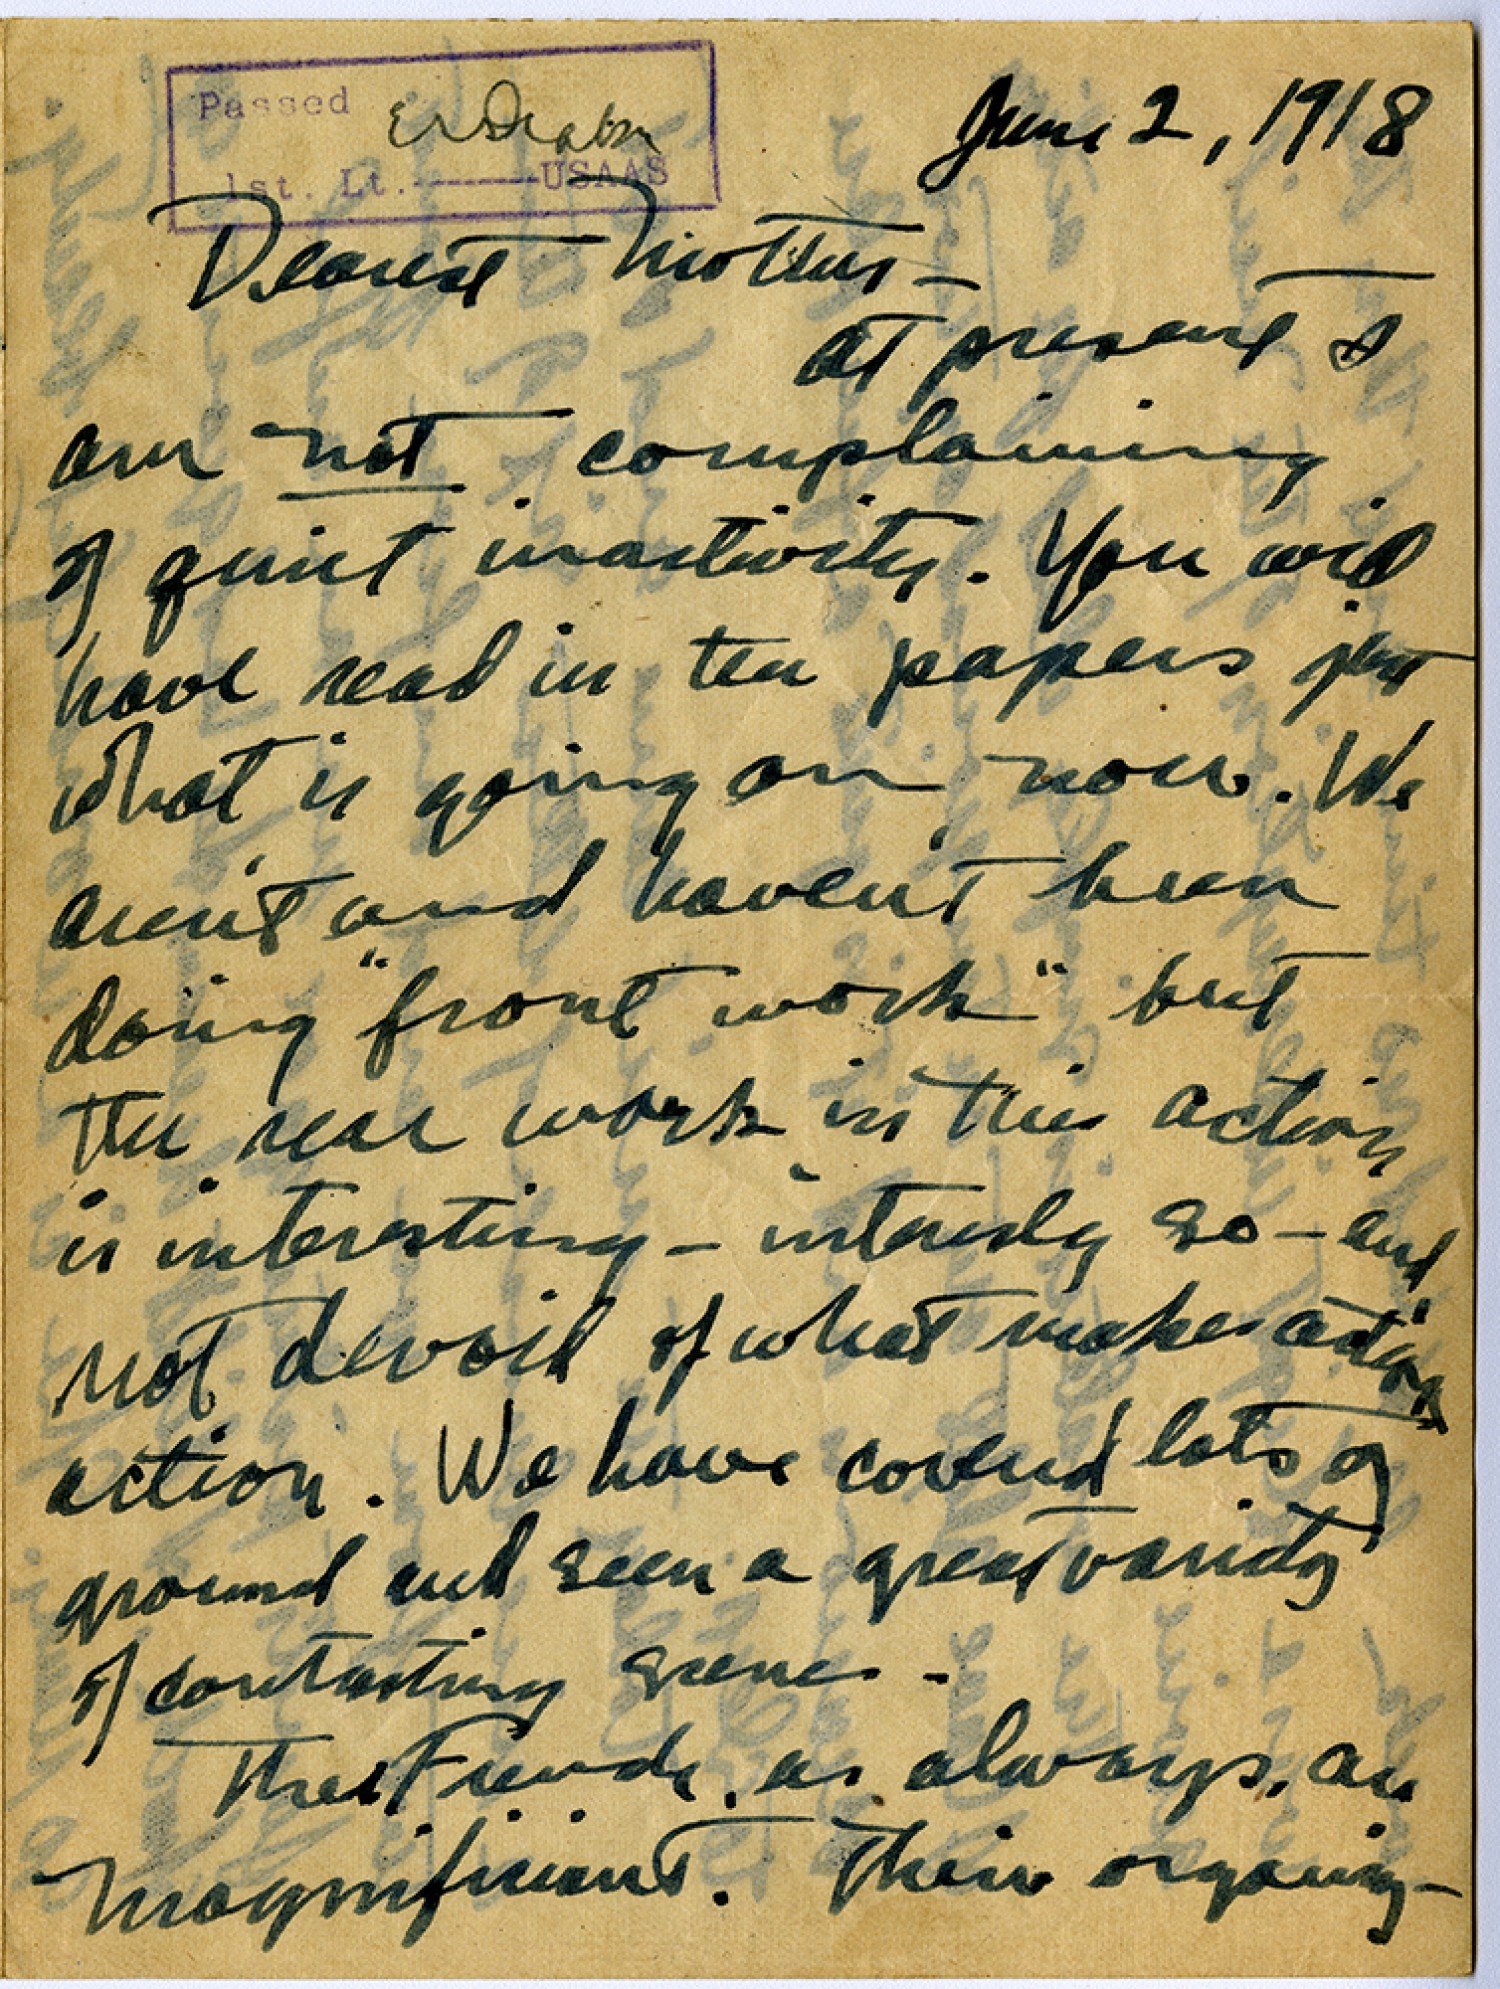 Passed
1st. Lt.------USAAS
June 2, 1918
Dearest Mother -
At present I
am not complaining
of quiet inactivity. You will
have read in the papers just
what is going on now. We
aren't and haven't been
doing "front work" but
the rear work in this action
is interesting - intensely so - and
not devoid of what makes action
action. We have covered lots of
ground and seen a great variety
of contrasting scenes -
The French, as always, are
magnificent. Their organiz-